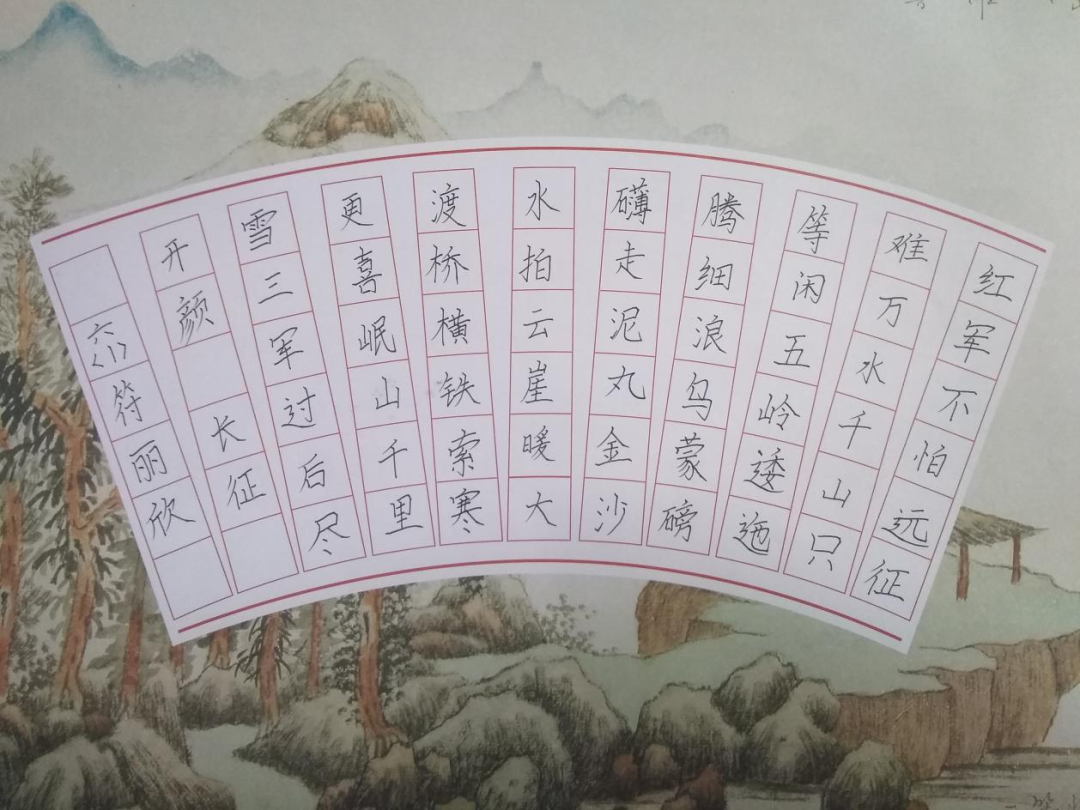 红军不怕远征
难万水千山只
等闲五岭逶迤
腾细浪乌蒙磅
礴走泥丸金沙
水拍云崖暖大
渡桥横铁索寒
更喜岷山千里
雪三军过后尽
开颜 长征
六(1)符丽欣